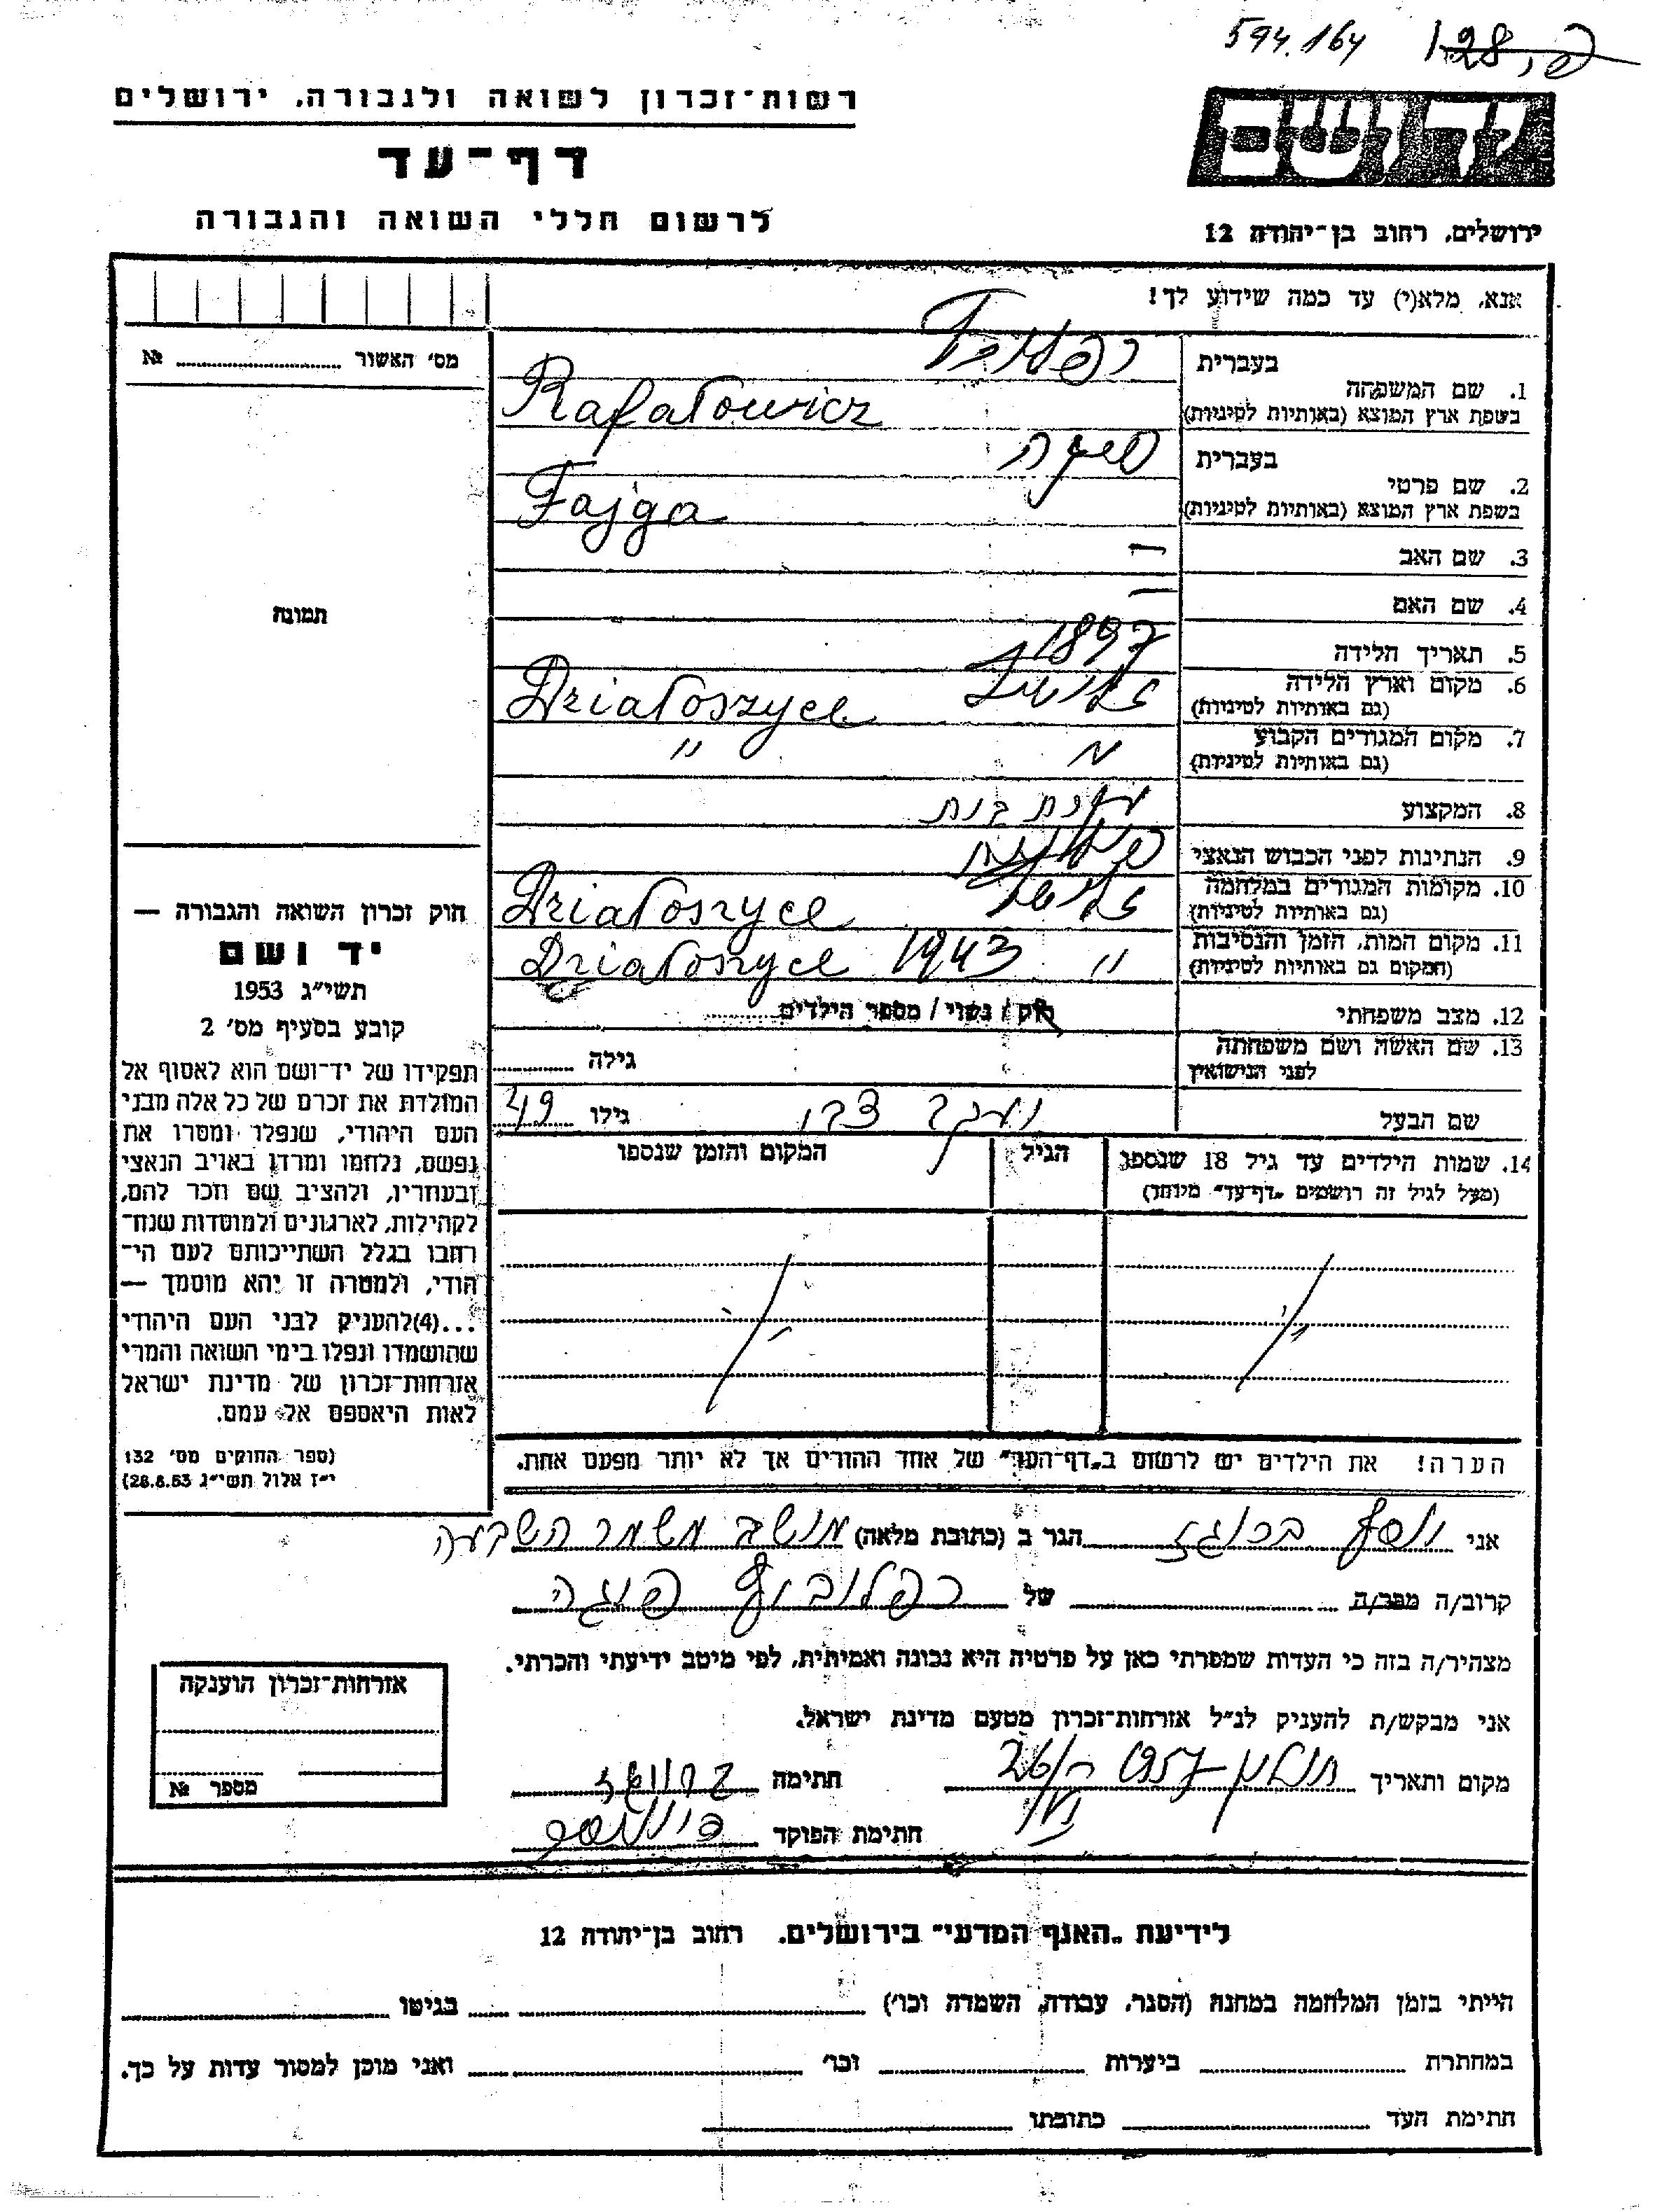 594.164 128
רשות-זכרון לשואה ולגבורה, ירושלים
דף-עד
לרשום חללי השואה והגבורה
ידושם
ירושלים, רחוב בן-יהודה 12
אנא, מלא(י) עד כמה שידוע לך!
מס' האשור № 
תמונה
בעברית
1. שם המשפחה
בשפת ארץ המוצא (באותיות לטיניות) Rafałowicz
בעברית פייגה
2. שם פרטי
בשפת ארץ המוצא (באותיות לטיניות) Fajga
3. שם האב —
4. שם האם —
5. תאריך הלידה 1897
6. מקום וארץ הלידה Działoszyce
(גם באותיות לטיניות)
7. מקום המגורים הקבוע " "
(גם באותיות לטיניות)
8. המקצוע עקרת בית
9. הנתינות לפני הכבוש הנאצי
10. מקומות המגורים במלחמה Działoszyce
(גם באותיות לטיניות)
11. מקום המות, הזמן והנסיבות " 1943 Działoszyce
(המקום גם באותיות לטיניות)
12. מצב משפחתי רוק / נשוי / מספר הילדים
13. שם האשה ושם משפחתה
לפני הנישואין גילה
שם הבעל יעקב צבי גילו 49
14. שמות הילדים עד גיל 18 שנספו הגיל המקום והזמן שנספו
(מעל לגיל זה רושמים "דף-עד" מיוחד)
הערה! את הילדים יש לרשום ב"דף-העד" של אחד ההורים אך לא יותר מפעם אחת.
חוק זכרון השואה והגבורה —
יד ושם
תשי"ג 1953
קובע בסעיף מס' 2
תפקידו של יד-ושם הוא לאסוף אל
המולדת את זכרם של כל אלה מבני
העם היהודי, שנפלו ומסרו את
נפשם, נלחמו ומרדו באויב הנאצי
ובעוזריו, ולהציב שם וזכר להם,
לקהילות, לארגונים ולמוסדות שנח-
רחבו בגלל השתייכותם לעם הי-
הודי, ולמטרה זו יהא מוסמך —
...(4)להעניק לבני העם היהודי
שהושמדו ונפלו בימי השואה והמרי
אזרחות-זכרון של מדינת ישראל
לאות היאספם אל עמם.
(ספר החוקים מס' 132
י"ז אלול תשי"ג 28.8.53)
אני יוסף הגר ב (כתובת מלאה) מושב משמר השבעה
קרוב/ה מכר/ה של רפלוביץ פייגה
מצהיר/ה בזה כי העדות שמסרתי כאן על פרטיה היא נכונה ואמיתית, לפי מיטב ידיעתי והכרתי.
אני מבקש/ת להעניק לנ"ל אזרחות-זכרון מטעם מדינת ישראל.
מקום ותאריך 1957 חתימה
חתימת הפוקד
אזרחות-זכרון הוענקה
מספר №
לידיעת "האגף המדעי" בירושלים, רחוב בן-יהודה 12
הייתי בזמן המלחמה במחנה (הסגר, עבודה, השמדה וכו') בגיטו
במחתרת ביערות וכו' ואני מוכן למסור עדות על כך.
חתימת העד כתובתו